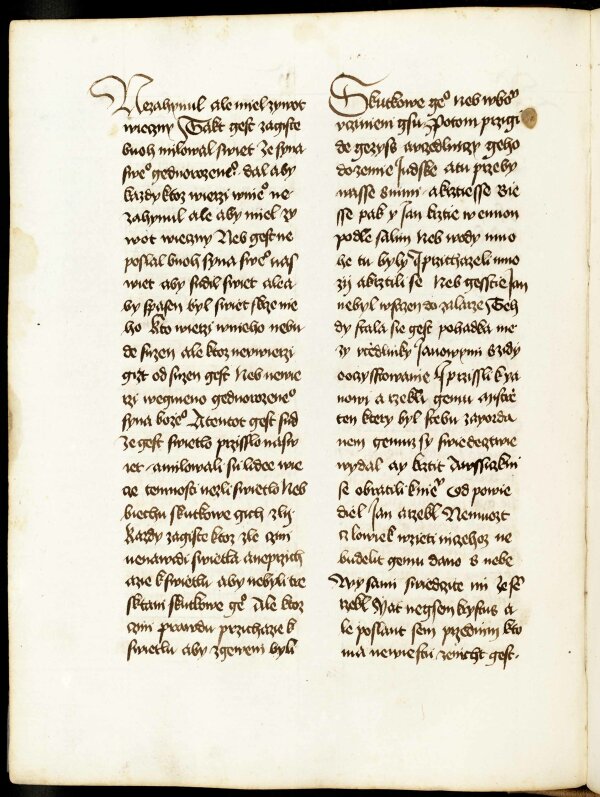 Nezahynul ale miel zywot
wieczny Takt gest zagiste
buoh milowal swiet ze syna
sweº gednorozeneº dal aby
kazdy ktoz wierzi wnieº ne
zahynul ale aby miel zy
wot wieczny Neb gest ne
poslal buoh syna sweº nas
wiet aby sudil swiet ale a
by spasen byl swiet skrze nie
ho Kto wierzi wnieho nebu
de suzen ale ktoz newierzi
gizt od suzen gest Neb newie
rzi wegmeno gednorozeneº
syna bozieº A tentot gest sud
ze gest swietlo przisslo nasw
iet a milowali su lidee wie
cze temnosti nezli swietlo Neb
biechu skutkowe gich zlij
Kazdy zagiste ktoz zle czini
nenawidi swietla a neprzich
azie k swietlu aby nebyli tre
sktani skutkowe geº Ale ktoz
czini prawdu przichazie k
swietlu aby zgeweni byli
Skutkowe geº neb wboº
vczinieni gsu Potom przigi
de gezyss a vczedlniczy geho
do zemie Judske a tu przeby
wasse s nimi a krztiesse Bie
sse pak y Jan krztie w ennon
podle salim Neb wody mno
he tu byly I przichazeli mno
zij a krztili se Neb gesstie Jan
nebyl wsazen do zalarze Teh
dy stala sie gest pohadka me
zy vczedlniky Janowymi s zidy
o oczysstowanie I przissli k ya
nowi a rzekli gemu Mistrze
ten ktery byl s tebu za yorda
nem gemuz sy swiedecztwie
wydal ay krztit A wssiczkni
se obratili k nieº Od powie
diel Jan a rzekl Nemuozt
czlowiek wzieti niczehoz ne
budelit gemu dano s nebe
Wy sami swiedczite mi ze sº
rzekl Yat negsem krystus a
le poslant sem przed nim kto
ma newiestu zenicht gest